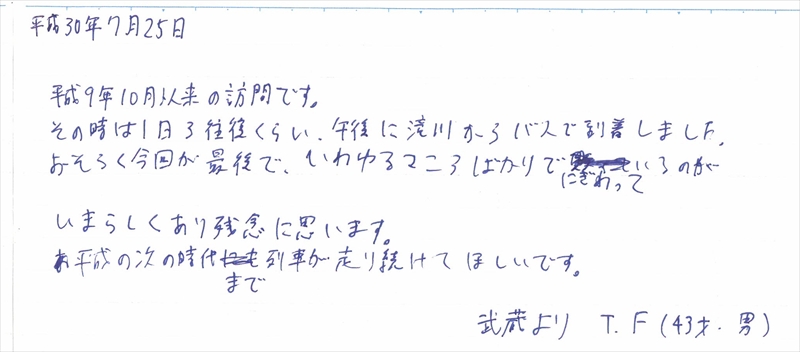 平成30年7月25日
平成9年10月以来の訪問です。
その時は1日3往復くらい、午後に滝川からバスで到着しました。
おそらく今回が最後で、いわゆるマニアばかりでにぎわっているのが
いまらしくあり残念に思います。
平成の次の時代まで列車が走り続けてほしいです。
武蔵より T.F(43才・男)